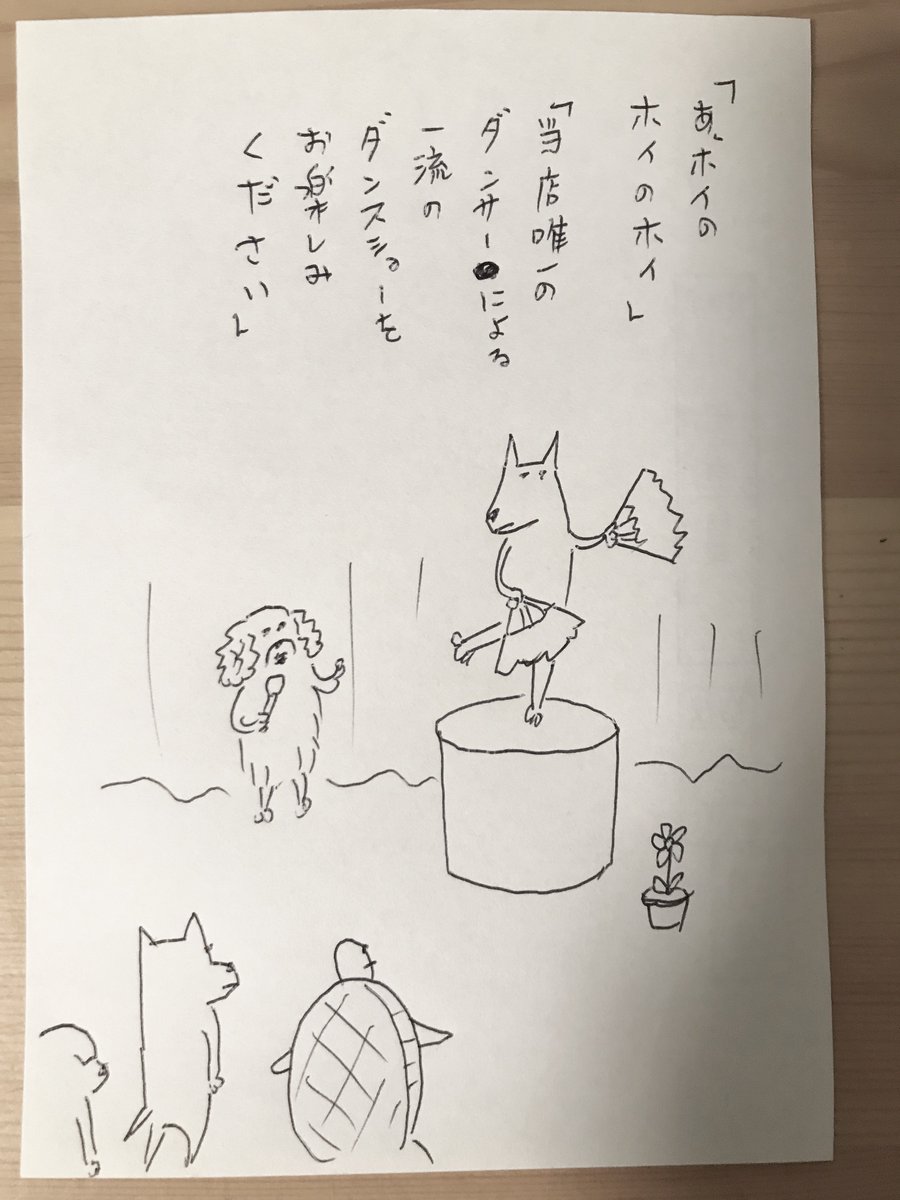 「あ、ホイの
ホイのホイ」
「当店唯一の
ダンサーによる
一流の
ダンスショーを
お楽しみ
ください」